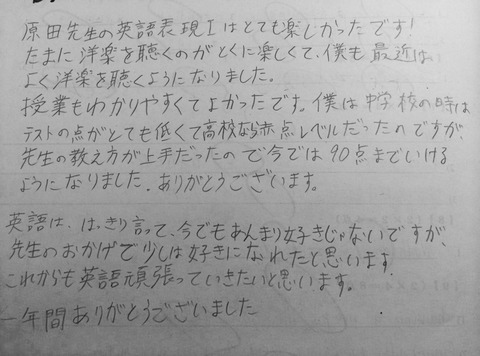 原田先生の英語表現Iはとても楽しかったです!
たまに洋楽を聴くのがとくに楽しくて、僕も最近は
よく洋楽を聴くようになりました。
授業もわかりやすくてよかったです。僕は中学校の時は
テストの点がとても低くて高校なら赤点レベルだったのですが
先生の教え方が上手だったので今では90点までいける
ようになりました。ありがとうございます。
英語は、はっきり言って、今でもあんまり好きじゃないですが、
先生のおかげで少しは好きになれたと思います
これからも英語頑張っていきたいと思います。
一年間ありがとうございました